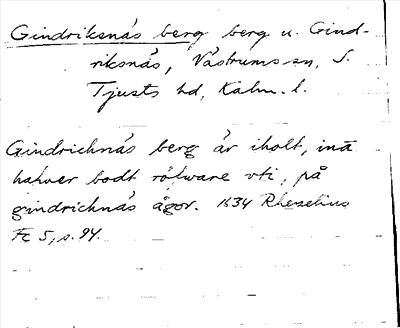 Gindriksnäs berg berg u. Gind-
riksnäs, Västrums sn, S.
Tjusts hd, Kalm. l.
Gindrichnäs berg är iholt, inā
hafver bodt rötware vti, på
gindrichnäs ägor. 1634 Rhezelius
Fc 5, s. 94.